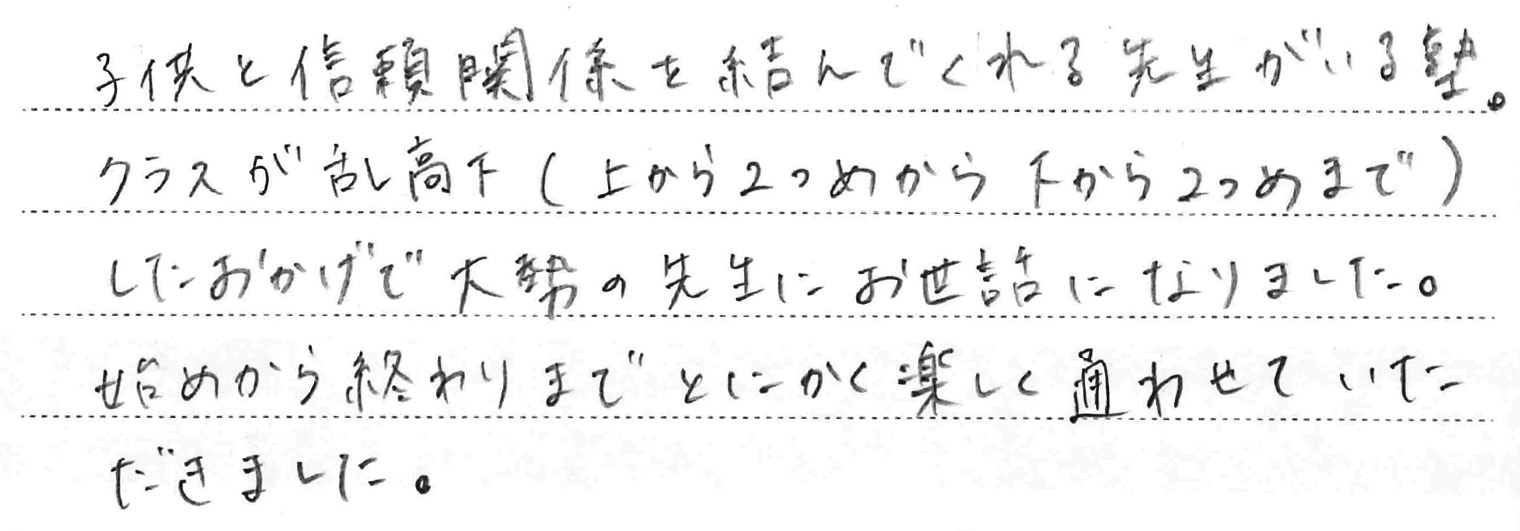 子供と信頼関係を結んでくれる先生がいる塾。
クラスが乱高下(上から2つめから下から2つめまで)
したおかげで大勢の先生にお世話になりました。
始めから終わりまでとにかく楽しく通わせていた
だきました。